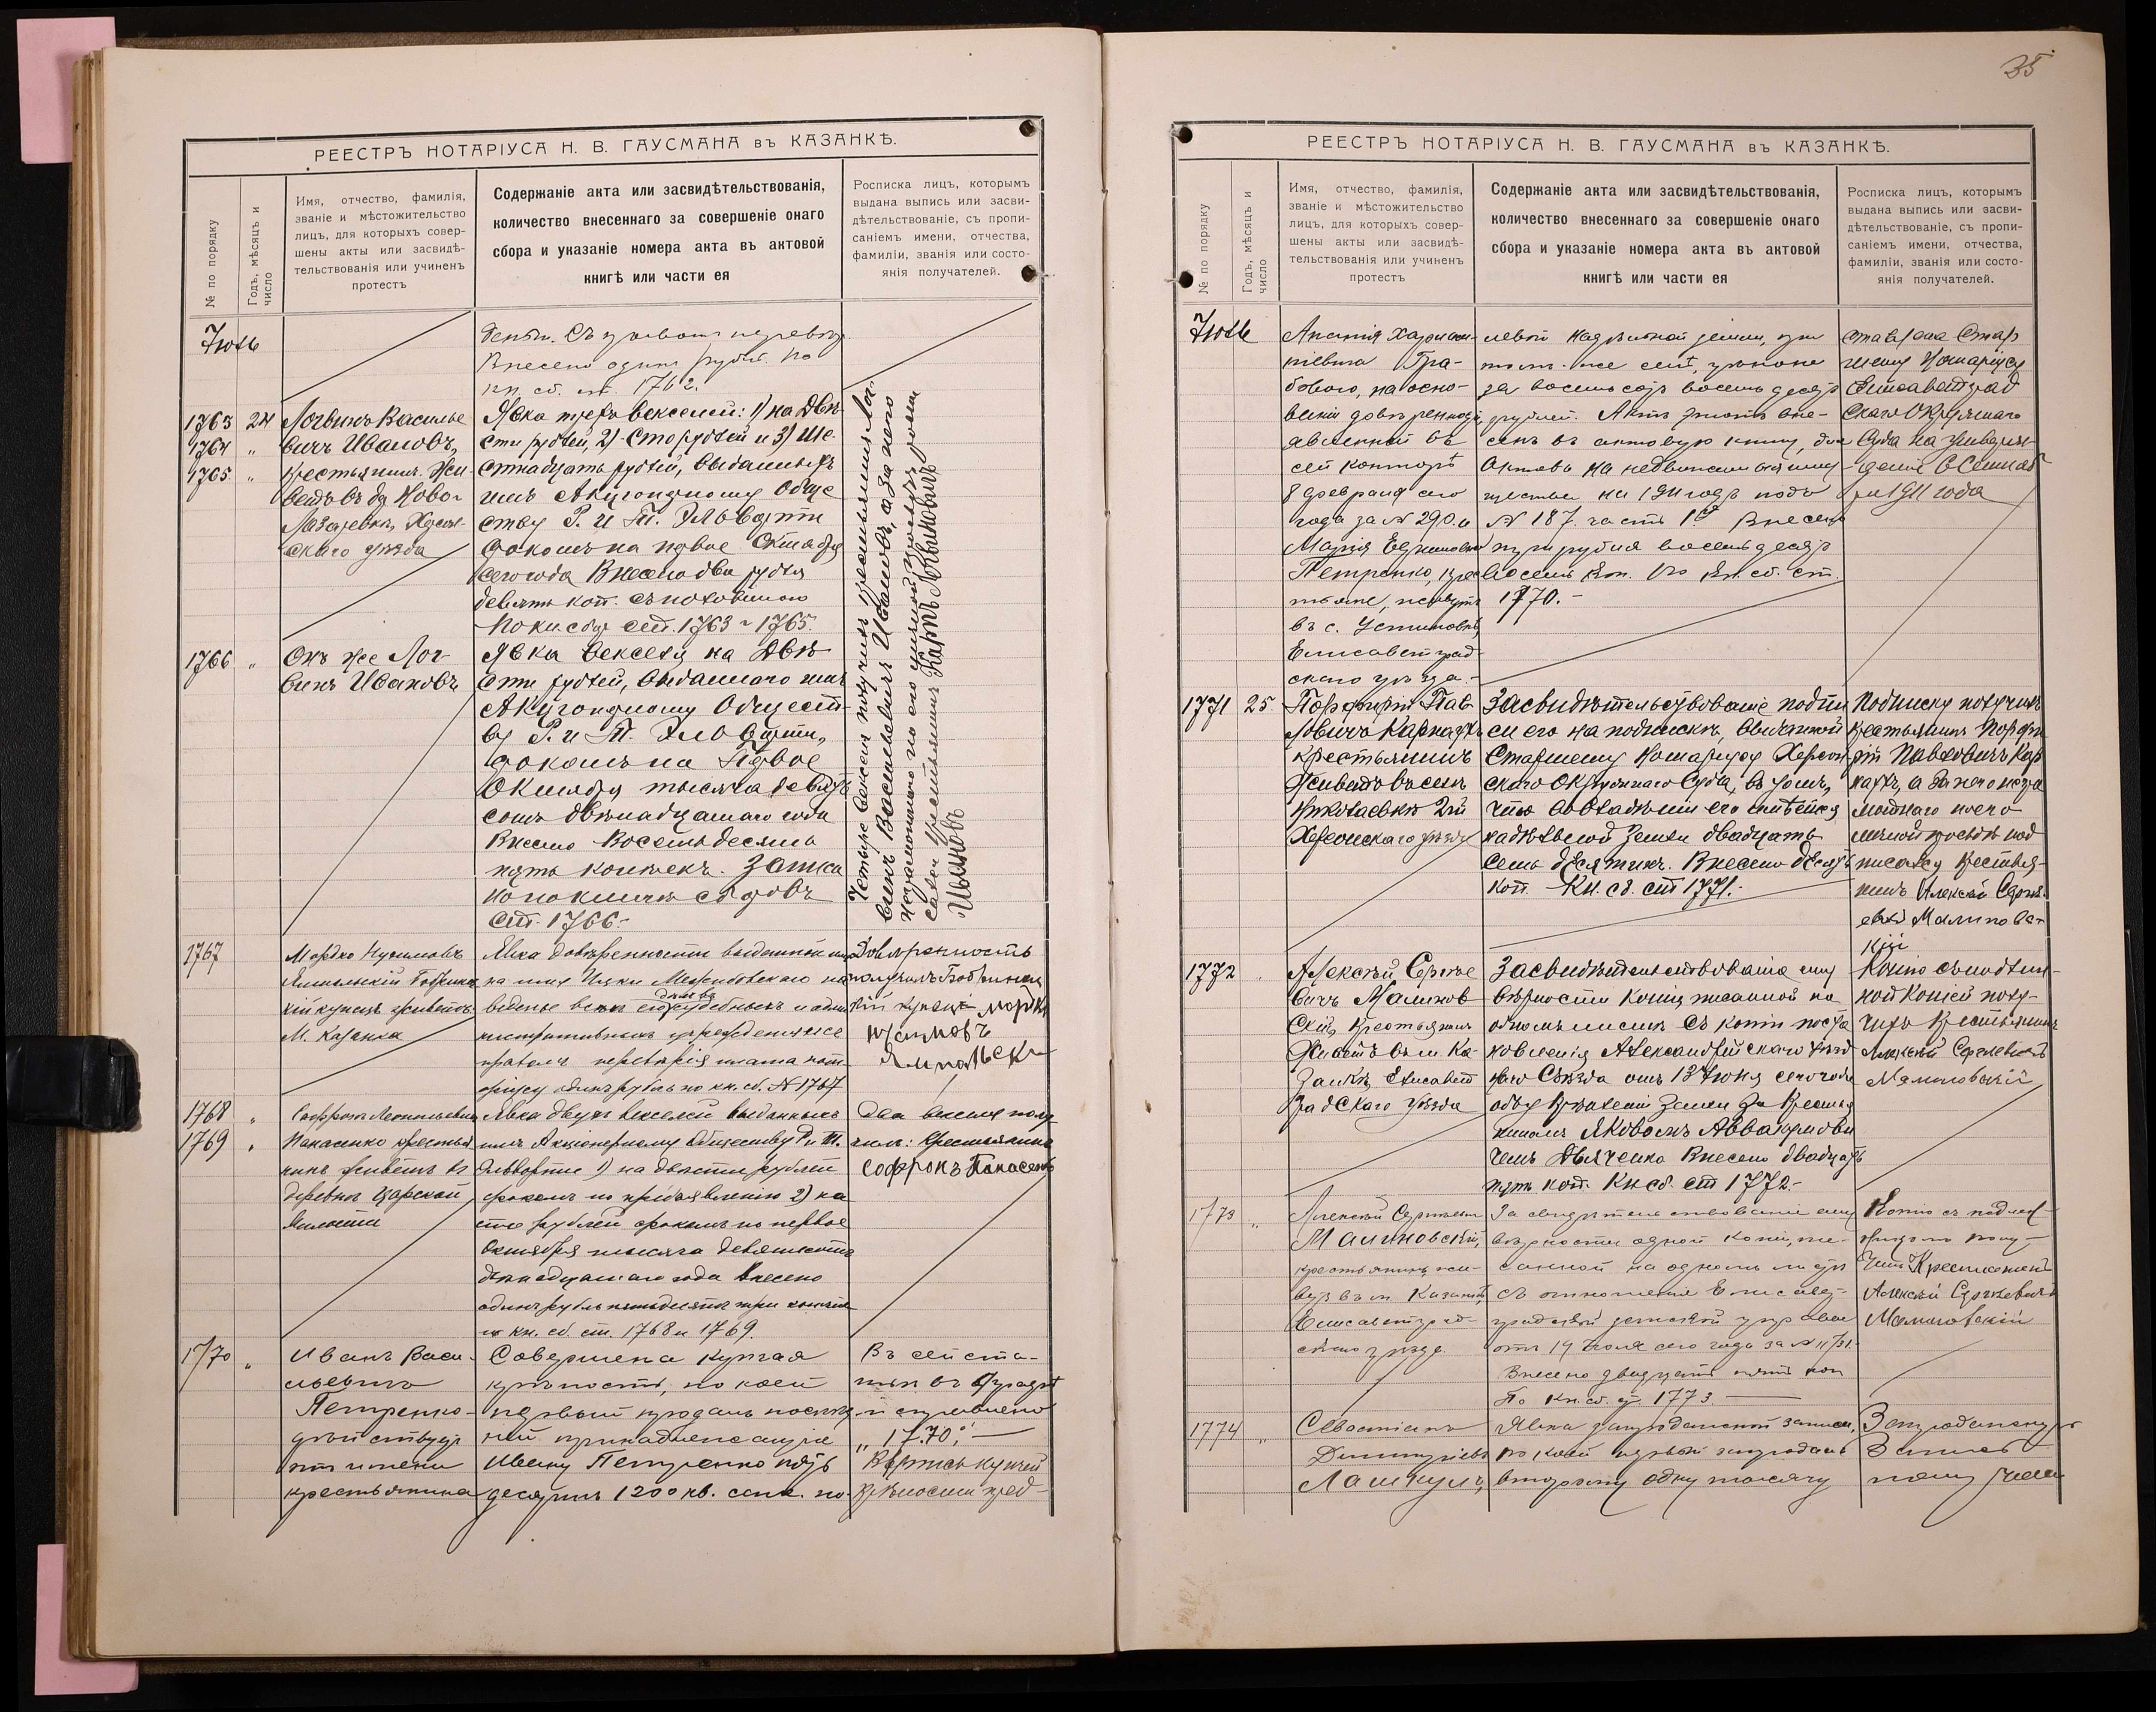 35
РЕЕСТРЪ НОТАРІУСА Н. В. ГАУСМАНА въ КАЗАНКѢ.
№ по порядку
Годъ, мѣсяцъ и
число
Имя, отчество, фамилія,
званіе и мѣстожительство
лицъ, для которыхъ совер-
шены акты или засвидѣ-
тельствованія или учиненъ
протестъ
Содержаніе акта или засвидѣтельствованія,
количество внесеннаго за совершеніе онаго
сбора и указаніе номера акта въ актовой
книгѣ или части ея
Росписка лицъ, которымъ
выдана выпись или засви-
дѣтельствованіе, съ пропи-
саніемъ имени, отчества,
фамиліи, званія или состо-
янія получателей.
Іюль
Внесено одинъ рубль. По
кн. сб. ст. 1762.
1763 24
1764 "
1765 "
Логвинъ Василье
вичъ Ивановъ,
крестьянинъ. Жи-
ветъ въ дер. Ново-
Лазаревкѣ, Херсон-
скаго уѣзда
Явка трехъ векселей: 1) на Двѣ
сти рублей, 2) Сто рублей и 3) Ше-
стнадцать рублей, выданныхъ
имъ Акціонерному Обще
ству Р. и Т. Эльворти
срокомъ на первое Октября
сего года Внесено два рубля
девять коп. съ половиною
По кн. сбор. ст. 1763 - 1765.
Четыре векселя получилъ крестьянинъ Лог-
винъ Васильевичъ Ивановъ, а за него
неграмотнаго по его личной просьбѣ роспи
сался крестьянинъ Карпъ Логвиновичъ
Ивановъ
1766 "
Онъ же Лог-
винъ Ивановъ
Явка векселя на Двѣ
сти рублей, выданнаго имъ
Акціонерному Общест-
ву Р. и Т. Эльворти,
срокомъ на Первое
Октября тысяча девять
сотъ двѣнадцатаго года
Внесено Восемьдесятъ
пять копѣекъ. Записа
но по книгѣ сборовъ
ст. 1766-
1767
Мордко Нусимовъ
Ямпольскій Бобринец
кій купецъ живетъ въ
М. Казанка
Явка довѣренности выданной имъ
на имя Ицки Меджибовскаго на
веденіе всѣхъ его дѣлъ въ судебныхъ и адми
нистративныхъ учрежденіяхъ съ
правомъ передовѣрія плата нота
ріусу одинъ рубль по кн. сб. № 1767
Довѣренность
получилъ Бобринец
кій купецъ Мордко
Нусимовъ
Ямпольскій
1768 "
1769 "
Софронъ Леонтьевичъ
Панасенко крестья
нинъ живетъ въ
деревнѣ Царской
Милости
Явка двухъ векселей выданныхъ
имъ Акціонерному Обществу Р. и Т.
Эльворти 1) на двѣсти рублей
срокомъ по предъявленію 2) на
сто рублей срокомъ по первое
Октября тысяча девятьсотъ
двѣнадцатаго года внесено
одинъ рубль пятьдесятъ три копѣйки
по кн. сб. ст. 1768 и 1769.
Два векселя полу
чилъ: Крестьянинъ
Софронъ Панасенко
1770 "
Иванъ Васи-
льевичъ
Петренко
дѣйствующ
отъ имени
крестьянина
Совершена купчая
крѣпость, по коей
первый продалъ послѣд
ней принадлежащіе
Ивану Петренко пять
десятинъ 1200 кв. саж. по-
Въ сей ста-
тьѣ въ 6 градѣ
исправлено
"1770."
Выпись купчей
крѣпости пред-
РЕЕСТРЪ НОТАРІУСА Н. В. ГАУСМАНА въ КАЗАНКѢ.
№ по порядку
Годъ, мѣсяцъ и
число
Имя, отчество, фамилія,
званіе и мѣстожительство
лицъ, для которыхъ совер-
шены акты или засвидѣ-
тельствованія или учиненъ
протестъ
Содержаніе акта или засвидѣтельствованія,
количество внесеннаго за совершеніе онаго
сбора и указаніе номера акта въ актовой
книгѣ или части ея
Росписка лицъ, которымъ
выдана выпись или засви-
дѣтельствованіе, съ пропи-
саніемъ имени, отчества,
фамиліи, званія или состо-
янія получателей.
Іюль
Гра-
бового, на осно-
ваніи довѣренности
явленной въ
сей конторѣ
8 февраля сего
года за № 290. и
Марія Ефимовна
Петренко, крес
тьяне, живутъ
въ с. Устиновкѣ,
Елисаветград
скаго уѣзда.-
левой надѣльной земли, при
томъ же селѣ, цѣною
за восемьсотъ восемьдесятъ
рублей. Актъ этотъ вне-
сенъ въ актовую книгу, для
Актовъ на недвижимыя иму-
щества на 1911 годъ подъ
№ 187. часть 1я Внесено
три рубля восемьдесятъ
восемь коп. По кн. сб. ст.
1770.-
ставлена Стар
шему Нотаріусу
Елисаветград
скаго Окружнаго
Суда на утверж-
деніе 6 Сентяб
ря 1911 года
1771 25
Порфирій Пав
ловичъ Карнаухъ
крестьянинъ
Живетъ въ селѣ
Николаевкѣ 2й
Херсонскаго уѣзда
Засвидѣтельствованіе подпи
си его на подпискѣ, выданной
Старшему Нотаріусу Херсон
скаго Окружнаго Суда, въ томъ,
что во владѣніи его имѣется
надѣльной Земли двадцать
семь десятинъ. Внесено десять
коп. Кн. сб. ст 1771.-
Подписку получилъ
Крестьянинъ Порфи
рій Павловичъ Кар
наухъ, а за него негра
мотнаго по его
личной просьбѣ под
писался Крестья-
нинъ Алексѣй Сергѣ-
евич Малиновс-
кій
1772 "
Алексѣй Сергѣе
вичъ Малинов
скій, крестьянинъ
Живетъ въ м. Ка-
занкѣ, Елисавет
градскаго уѣзда
Засвидѣтельствованіе ему
вѣрности копіи, писанной на
одномъ листѣ съ копіи поста
новленія Александрійскаго уѣзд
наго Съѣзда отъ 13 Іюня сего года
объ укрѣпленіи Земли за Крестья
ниномъ Яковомъ Аввакумови
чемъ Дьяченко Внесено двадцать
пять коп. Кн сб. ст 1772.-
Копію съ подлин-
ной копіей полу-
чилъ Крестьянинъ
Алексѣй Сергѣевичъ
Малиновскій
1773 "
Алексѣй Сергѣевичъ
Малиновскій,
крестьянинъ, жи-
ветъ въ м. Казанкѣ,
Елисаветград-
скаго уѣзда
Засвидѣтельствованіе ему
вѣрности одной копіи, пи-
санной на одномъ листѣ
съ отношенія Елисавет-
градской земской управы
отъ 19 Іюля сего года за № 11731.
Внесено двадцать пять коп
По Кн. сб. ст. 1773.
Копію съ подлин-
никомъ полу-
чилъ Крестьянинъ
Алексѣй Сергѣевичъ
Малиновскій
1774 "
Севастіанъ
Дмитріевъ
Лашкулъ,
Явка запродажной записи,
по коей первый запродалъ
второму одну тысячу
Запродажную
Запись
получилъ